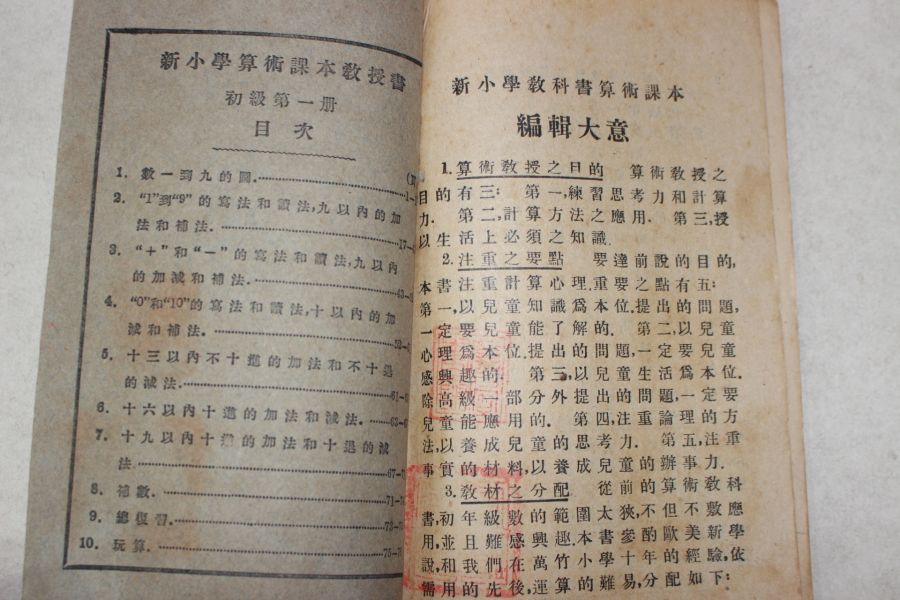 新小學算術課本教授書
初級第一册
目次
1. 數一到九的圖.
2. “1”到“9”的寫法和讀法,九以內的加
法和補法. 17—
3. “+”和“−”的寫法和讀法,九以內
的加減和補法.
4. “0”和“10”的寫法和讀法,十以內的加
減和補法.
5. 十三以內不十進的加法和不十退
的減法. 61—
6. 十六以內十進的加法和減法. 63—
7. 十九以內十進的加法和十退的減
法 67—
8. 補數. 71—
9. 總復習. 73—
10. 玩算. 75—
新小學教科書算術課本
編輯大意
1. 算術教授之目的 算術教授之
目的有三: 第一,練習思考力和計算
力. 第二,計算方法之應用. 第三,授
以生活上必須之知識.
2. 注重之要點 要達前說的目的,
本書注重計算心理,重要之點有五:
第一,以兒童知識爲本位,提出的問題,
一定要兒童能了解的. 第二,以兒童
心理爲本位,提出的問題,一定要兒童
感興趣的. 第三,以兒童生活爲本位.
除高級一部分外提出的問題,一定要
兒童能應用的. 第四,注重論理的方
法,以養成兒童的思考力. 第五,注重
事實的材料,以養成兒童的辦事力.
3. 教材之分配. 從前的算術教科
書,初年級數的範圍太狹,不但不敷應
用,並且難感興趣本書參酌歐美新學
說,和我們在萬竹小學十年的經驗,依
需用的先後,運算的難易,分配如下: